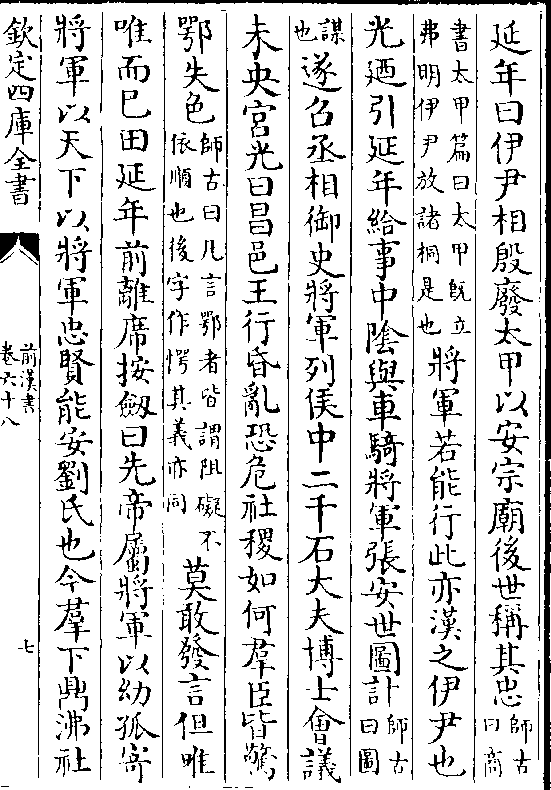 延年曰伊尹相殷廢太甲以安宗廟後世稱其忠師古曰商
書太甲篇曰太甲既立弗明伊尹放諸桐是也將軍若能行此亦漢之伊尹也
光廼引延年給事中陰與車騎將軍張安世圖計師古曰圖
謀也遂召丞相御史將軍列侯中二千石大夫博士會議
未央宮光曰昌邑王行昏亂恐危社稷如何羣臣皆驚
鄂失色師古曰凡言鄂者皆謂阻礙不依順也後字作愕其義亦同莫敢發言但唯
唯而已田延年前離席按劒曰先帝屬將軍以幼孤寄
將軍以天下以將軍忠賢能安劉氏也今羣下鼎沸社
欽定四庫全書
前漢書
卷六十八
七